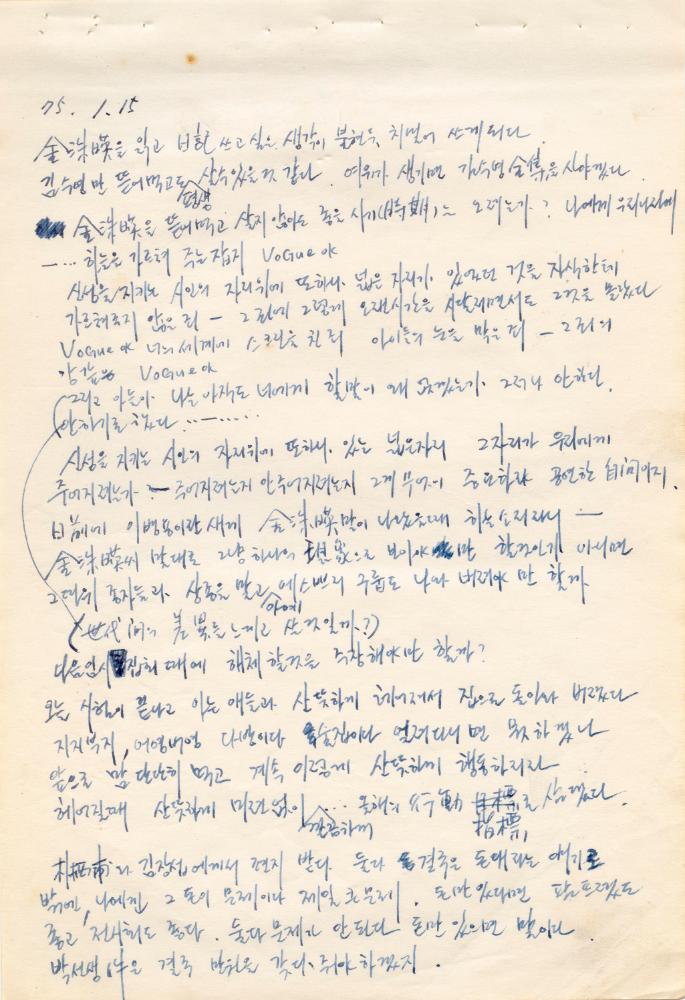 75. 1. 15
金洙暎을 읽고 日記 쓰고 싶은 생각이 불현듯 치밀어 쓰게 되다.
김수영만 뜯어먹고도 평생 살수 있을것 같다. 여유가 생기면 김수영 全集을 사야겠다.
金洙暎을 뜯어먹고 살지 않아도 좋을 시기(時期)는 오려는가? 나에게 우리나라에
―… 하늘을 가르쳐 주는 잡지 VOGUE야
신성을 지키는 시인의 자리위에 또하나 넓은 자리가 있었던 것을 자식한테
가르쳐주지 않은 죄 ― 그 죄에 그렇게 오랜시간을 시달리면서도 그것을 몰랐다
VOGUE야 너의 세계에 스크린을 친 죄 아이들의 눈을 막은 죄 ― 그 죄의
VOGUE야
그리고 아들아 나는 아직도 너에게 할말이 왜 없겠는가. 그러나 안한다.
안하기로 했다 ………
신성을 지키는 시인의 자리위에 또하나 있는 넓은자리 그자리가 우리에게
주어지려는가 ― 주어지려는지 안주어지려는지 그게 무어이 중요하랴 공연한 自問이지.
日前에 이병용이란 새끼 金洙暎말이 나왔을때 하는 소리라니 ―
金洙暎씨 맞대로 그냥 하나의 現象으로 보아야만 할것인가 아니면
그따위 종자들과 상종을 말고 아예 에스쁘리 구룹도 나와 버려야만 할까
(世代間의 差異를 느끼고 쓴것일까?)
다음 임시 집회때에 해체할것을 주장해야만 할까?
오늘 시험이 끝나고 아는 애들과 산뜻하게 헤어져서 집으로 돌아와 버렸다
지지부지, 어영버영 다방이다 술집이다 어울려다니면 못하겠나
앞으로 맘 단단히 먹고 계속 이렇게 산뜻하게 행동하리라
헤어질때 산뜻하게 미련없이 … 과감하게 올해의 行動 目標로 삼겠다.
指標
김창섭에게서 편지 받다. 둘다 결국은 돈때라는 얘기로
밖에. 나에겐 그 돈이 문제이다 제일 큰문제. 돈만 있다면 팜프렛도
좋고 전시회도 좋다. 둘다 문제가 안된다 돈만 있으면 말이다
박선생 件은 결국 만원을 갖다 줘야 하겠지.